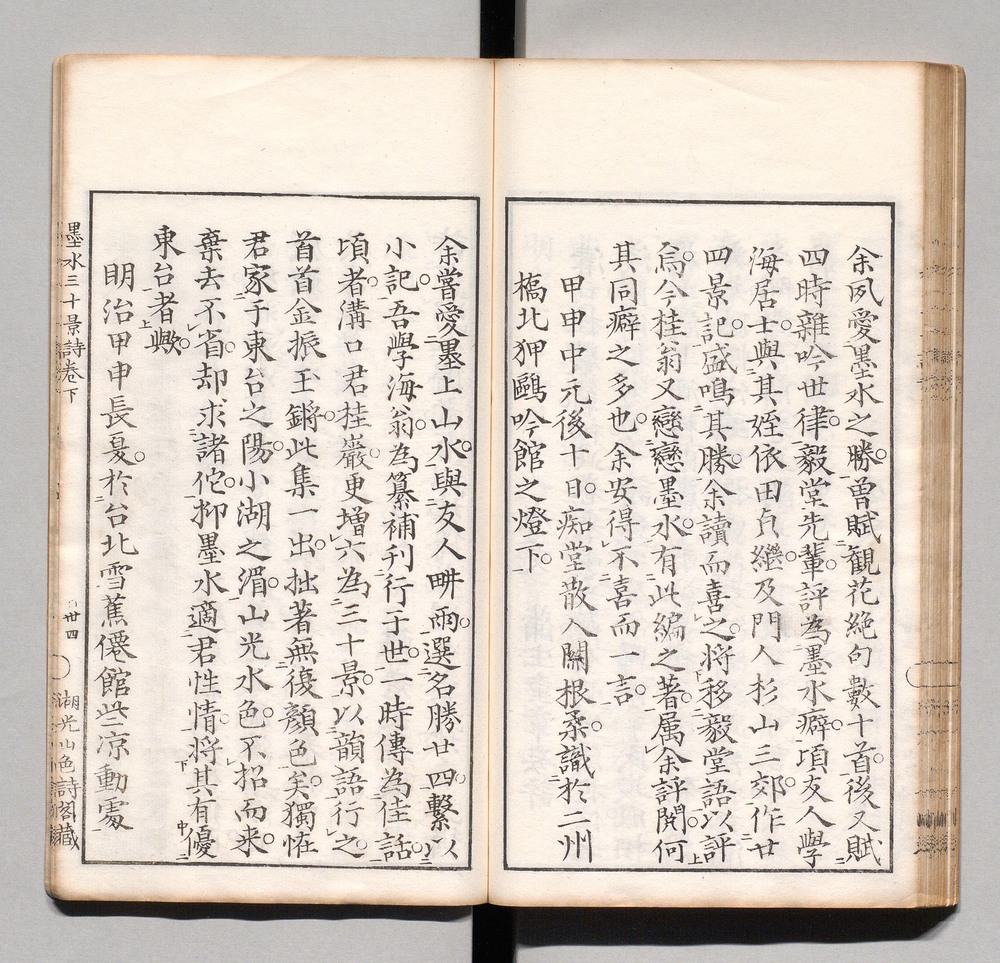 余夙愛墨水之勝曽賦観花絶句數十首後又賦
四時雜吟廿律毅堂先輩評為墨水癖項友人學
海居士與其姪依田貞繼及門人杉山三郊作廿
四景記盛鳴其勝余讀而喜之将移毅堂語以評
焉今桂翁又戀戀墨水有此編之著属余評閲何
其同癖之多也余安得不喜而一言
甲申中元後十日痴堂散人關根柔識於二州
橋北狎鷗吟館之燈下
余嘗愛墨上山水與友人畊雨選名勝廿四繫以
小記吾學海翁為纂補刊行于世一時傳為佳話
頃者溝口君桂巖更増六為三十景以韻語行之
首首金振玉鏘此集一出拙著無復顔色矣獨怪
君家于東台之陽小湖之湄山光水色不招而来
棄去不省却求諸佗抑墨水適君性情将其有優
東台者歟
明治甲申長夏於台北雪蕉僊館此凉動處
墨水三十景詩卷下
廿四
湖光山色詩閣藏